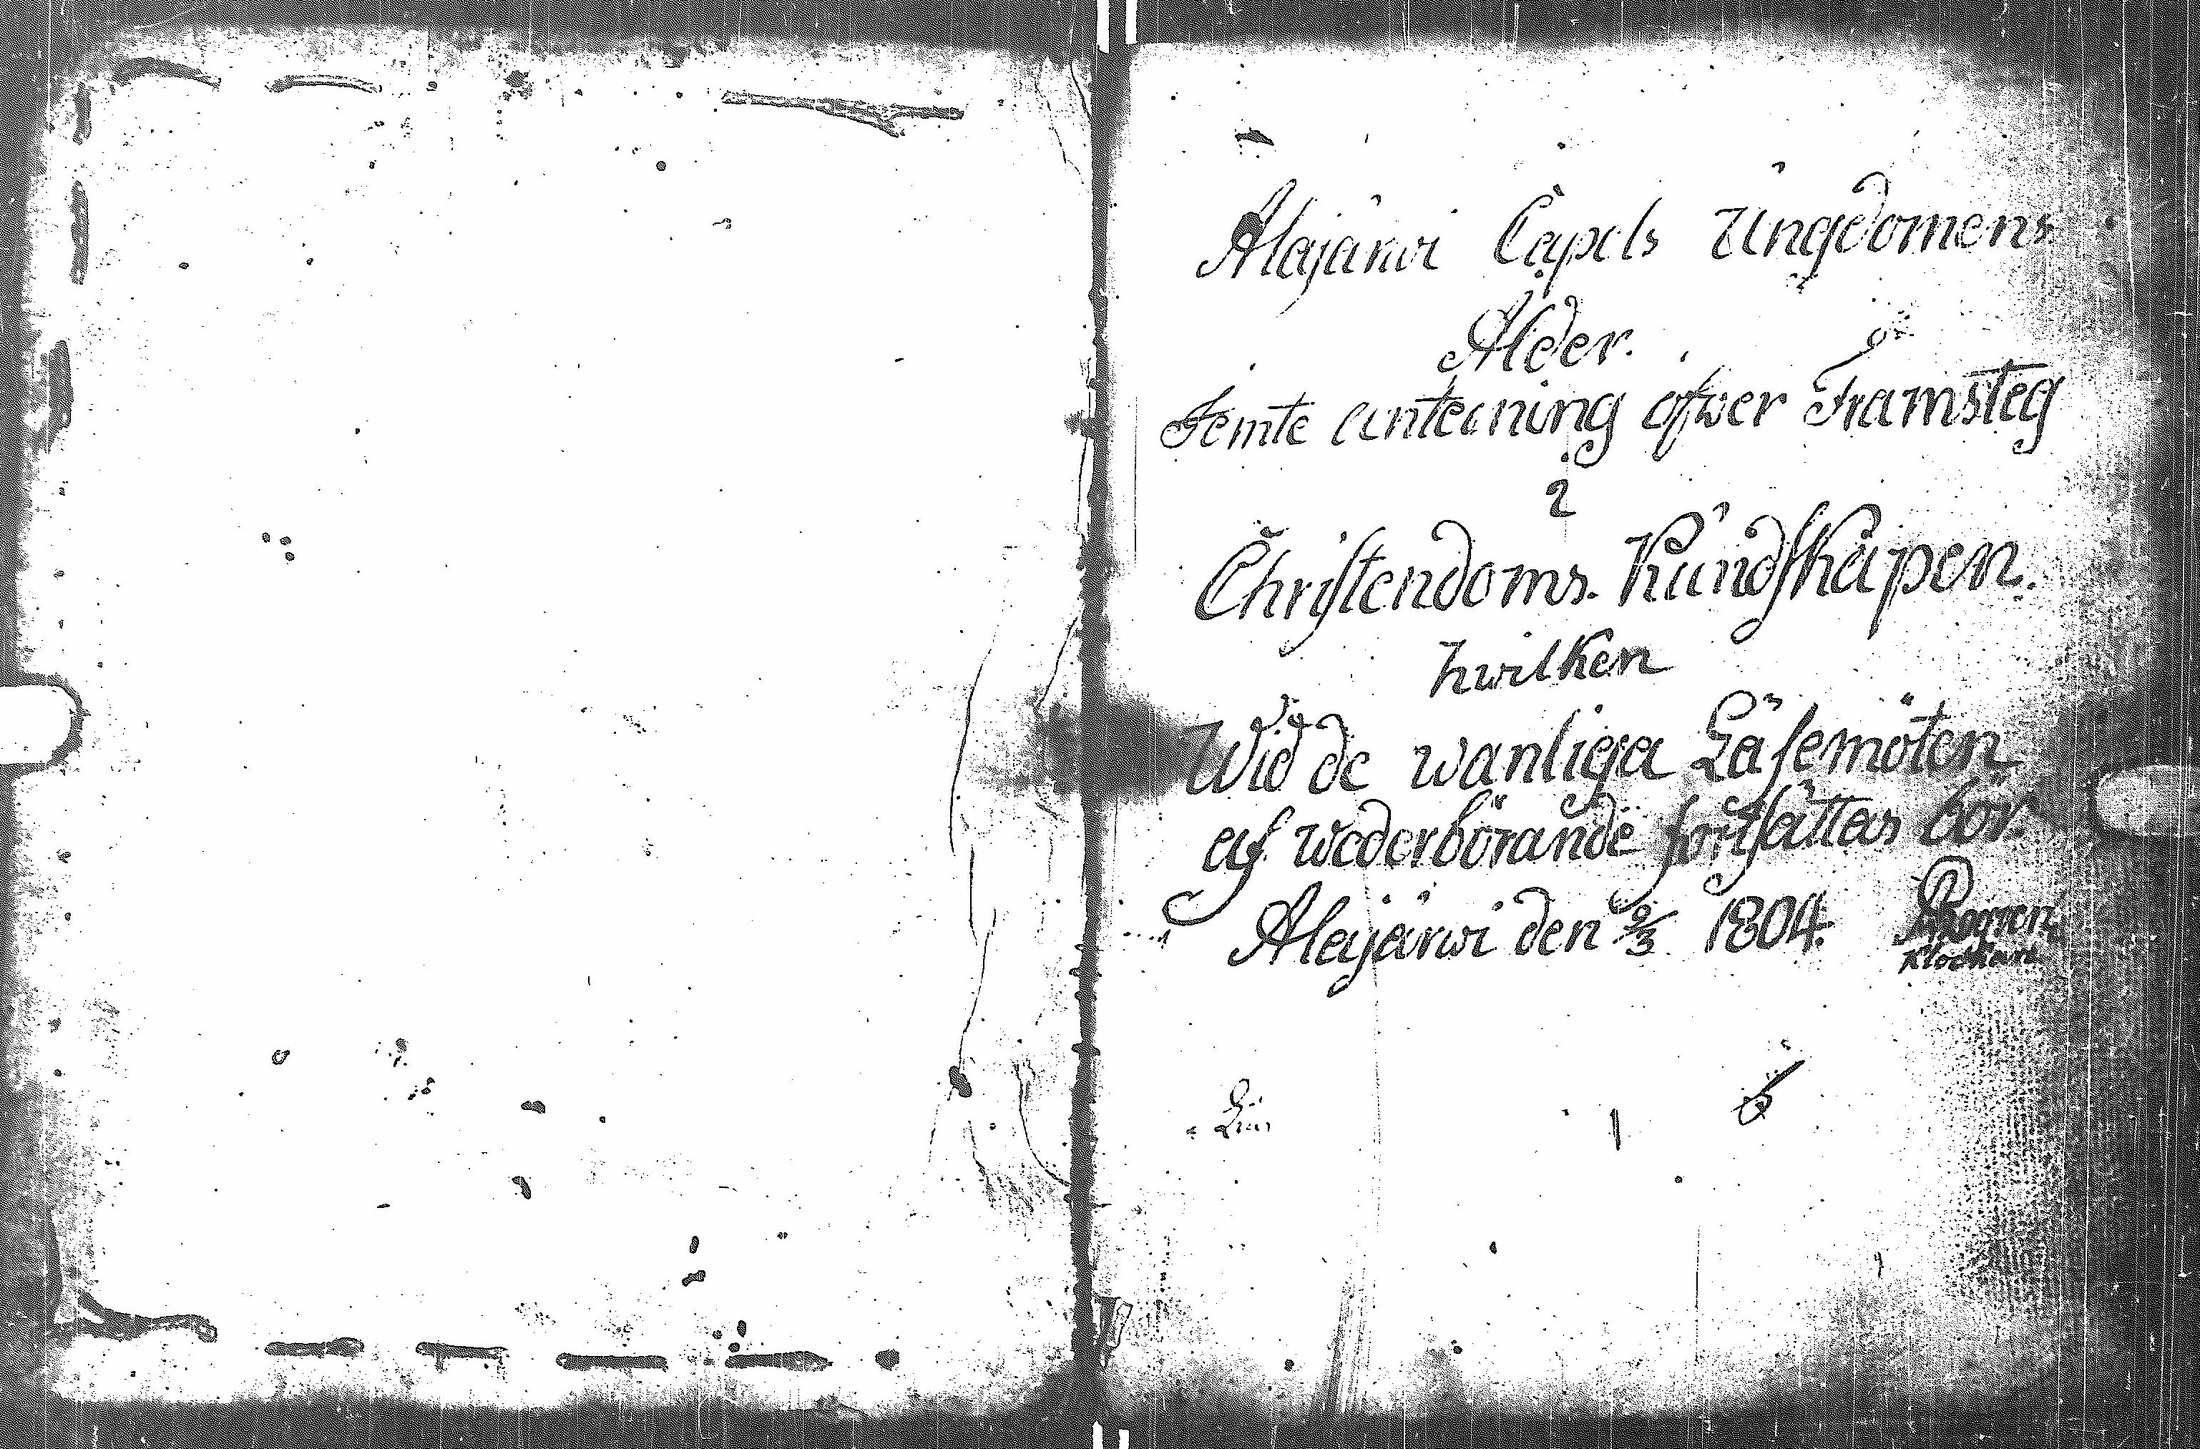 Alajärwi Capels Ungdomens
Ålder.
Jemte anteckning öfwer Framsteg
i
Christendoms Kundskapen.
hwilken
Wid de wanliga Läsemöten
af wederbörande fortsättas bör.
Alajärwi den 9/3 1804.
Klockare